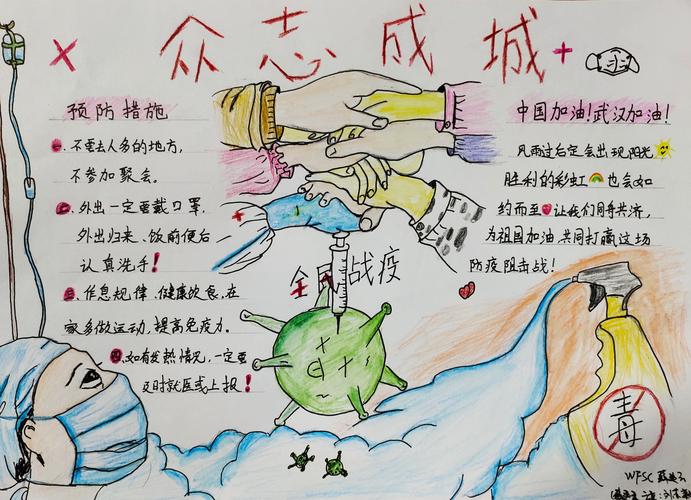 众志成城
预防措施
一.不要去人多的地方,
不参加聚会。
二.外出一定要戴口罩,
外出归来、饭前便后
认真洗手!
三.作息规律、健康饮食,在
家多做运动,提高免疫力。
四.如有发热情况,一定要
及时就医或上报!
中国加油!武汉加油!
风雨过后定会出现阳光
胜利的彩虹也会如
约而至让我们同舟共济,
为祖国加油共同打赢这场
防疫阻击战!
全民战疫
毒
WFSC